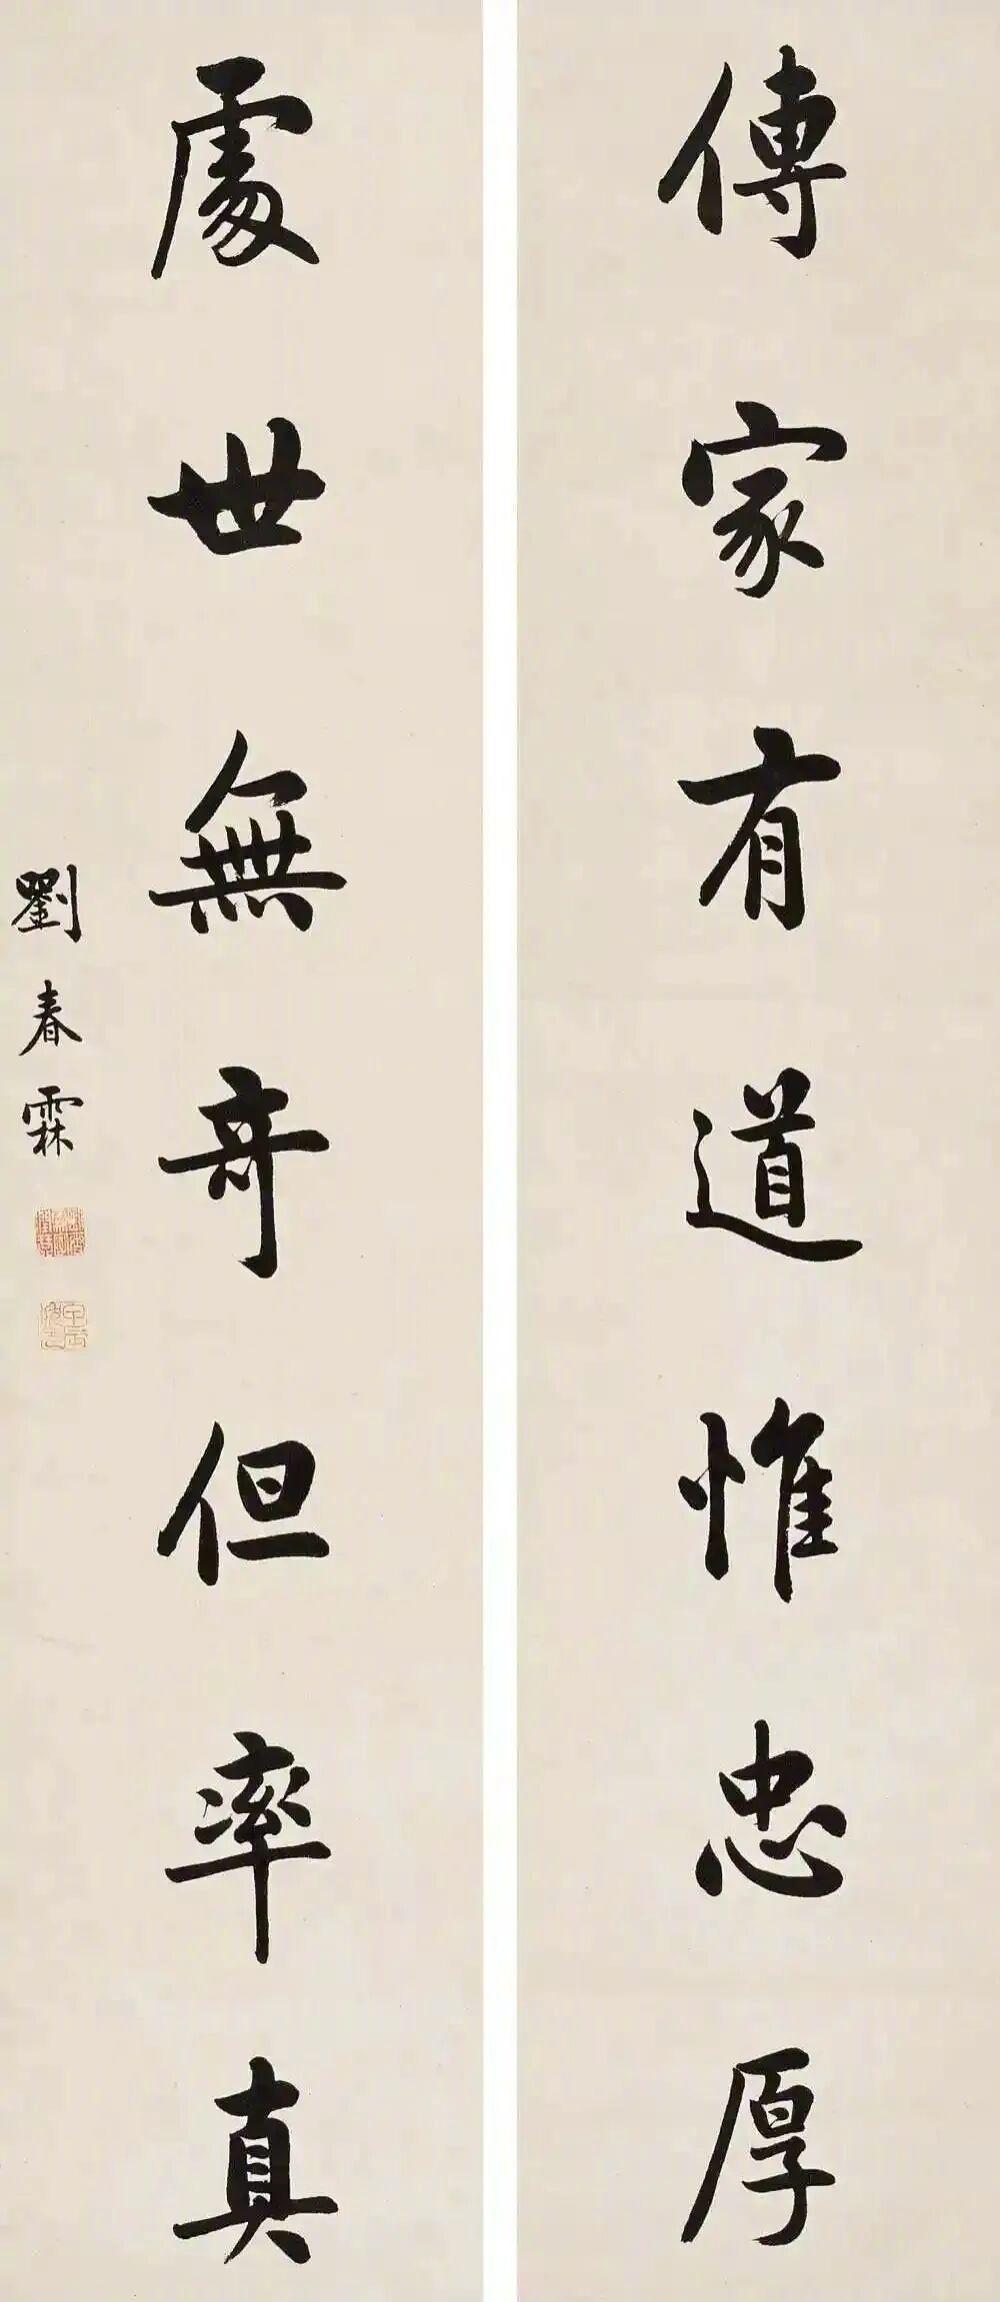 傳家有道惟忠厚
處世無奇但率真
劉春霖